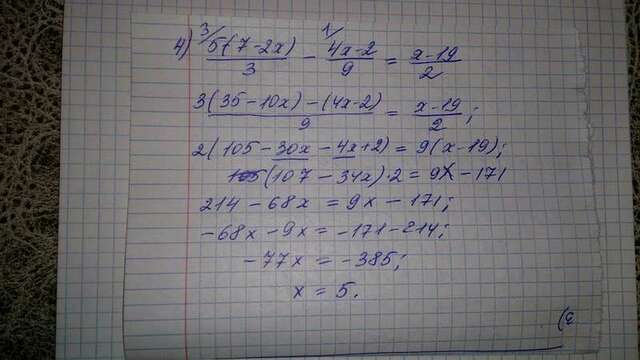 4) ³/5(7-2x)/3 - ¹/4x-2/9 = x-19/2
3(35-10x)-(4x-2)/9 = x-19/2;
2(105-30x-4x+2)=9(x-19);
(107-34x)·2=9x-171
214-68x=9x-171;
-68x-9x=-171-214;
-77x=-385;
x=5.
3)